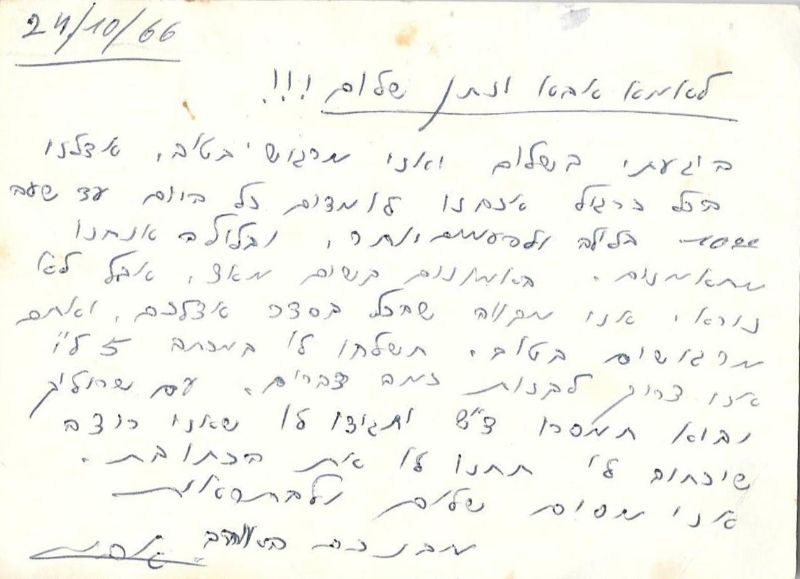 24/10/66
לאמא אבא ונתן שלום !!!
הגעתי בשלום ואני מרגיש בטוב. אצלנו
הכל כרגיל אנחנו לומדים כל היום עד שעה
2200 בלילה ולפעמים יותר, ובלילה אנחנו
מתאמנים. האמונים קשים מאד, אבל לא
נורא. אני מקווה שהכל בסדר אצלכם, ואתם
מרגישים בטוב. תשלחו לי במכתב 5 ל"י
אני צריך לקנות כמה דברים. עם שרוליק
יבוא תמסרו ד"ש ותגידו לו שאני רוצה
שיכתוב לי תתנו לו את הכתובת.
אני מסיים שלום ולהתראות
מבנכם האוהב